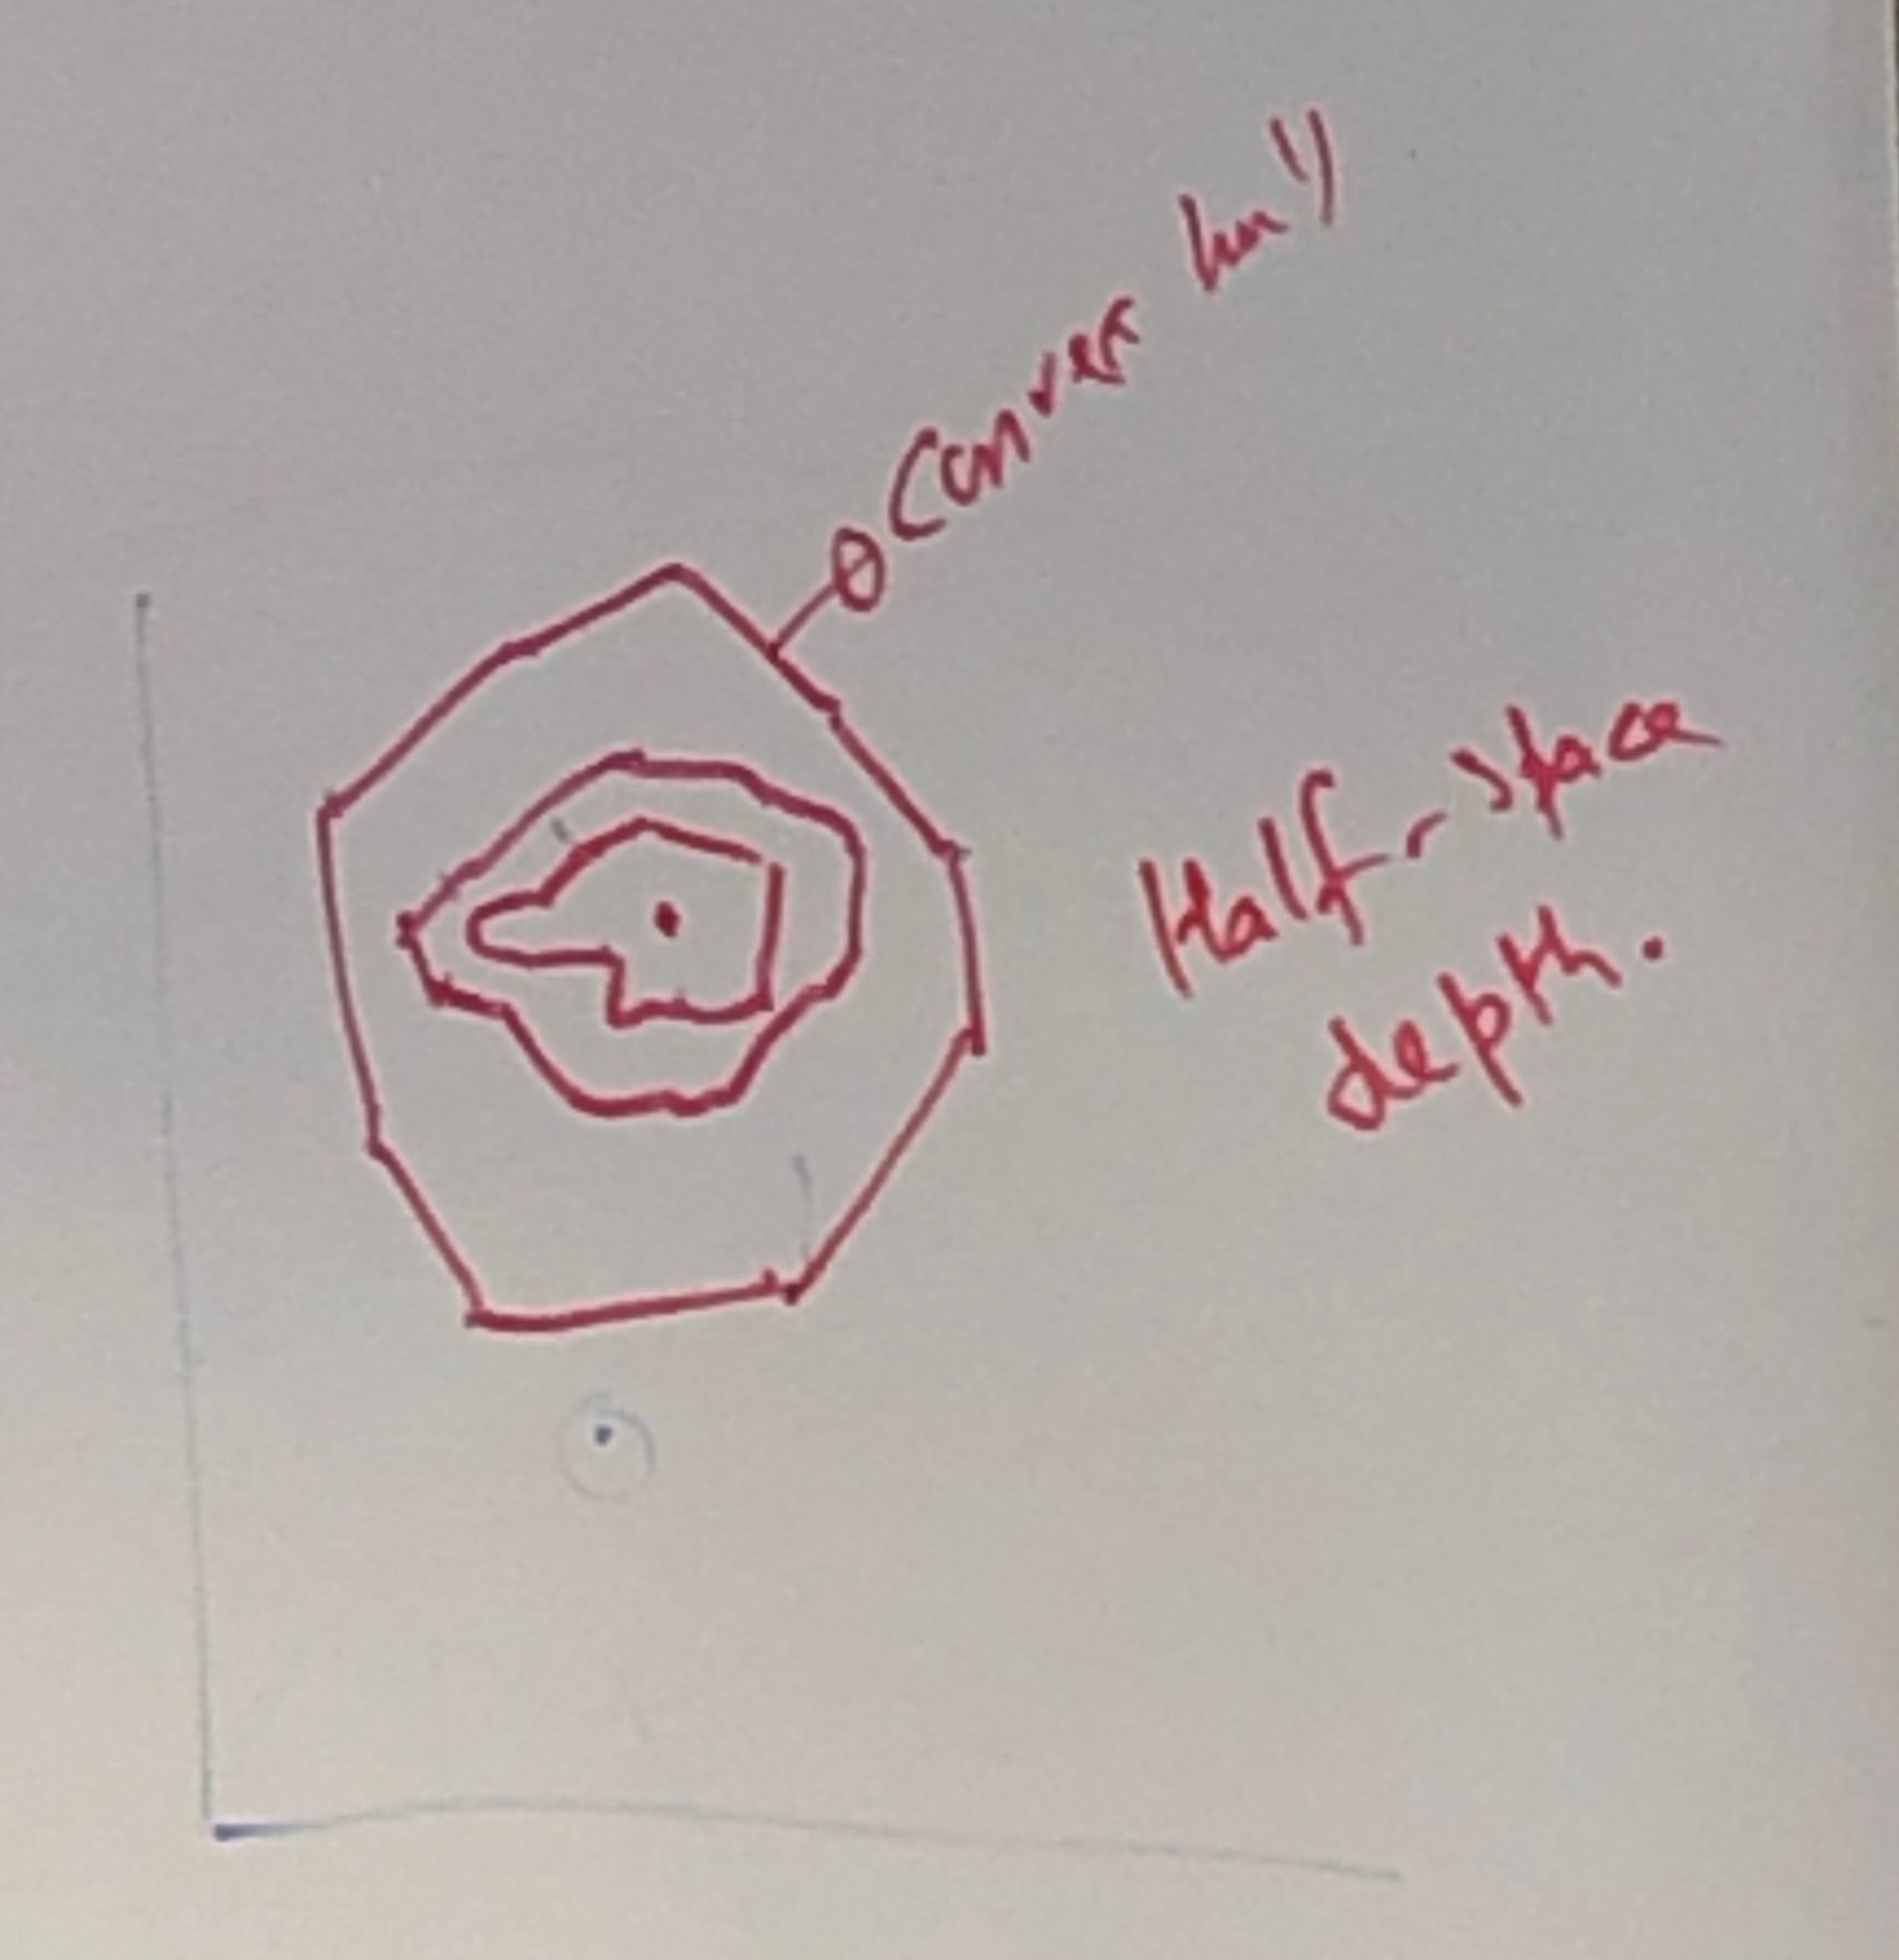 Convex hull
Half-space
depth.